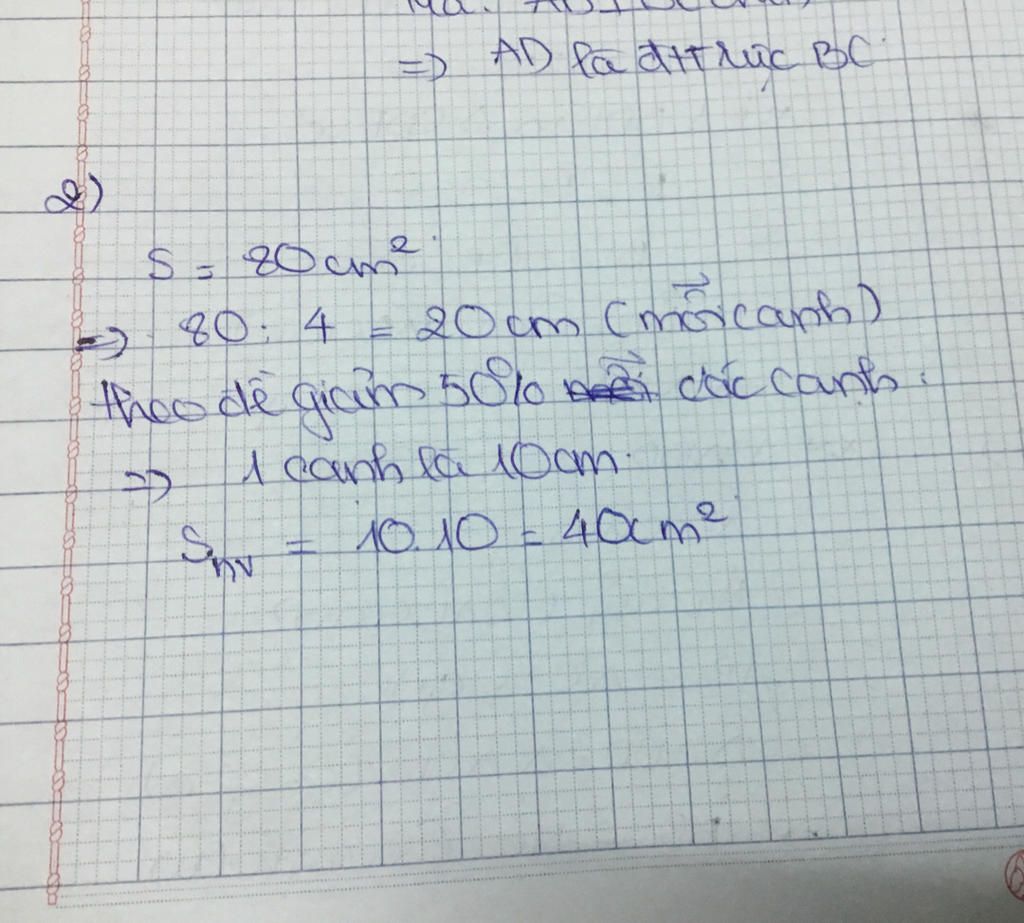 => AD là đtt rực BC
2)
S = 80cm²
=> 80 : 4 = 20cm (mỗi cạnh)
theo đề giảm 50% các cạnh.
=> 1 cạnh là 10cm.
Snv = 10.10 = 40cm²